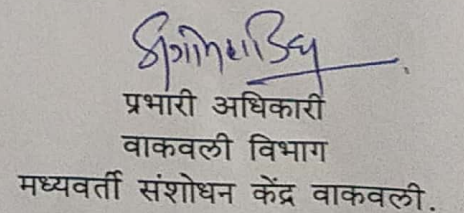 प्रभारी अधिकारी
वाकवली विभाग
मध्यवर्ती संशोधन केंद्र वाकवली.